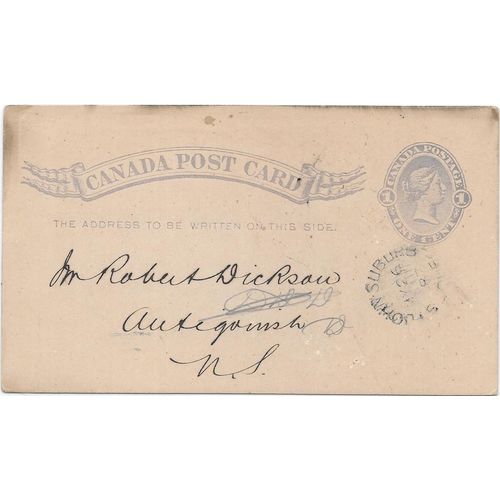 CANADA POST CARD
CANADA POSTAGE
1 1
ONE CENT
THE ADDRESS TO BE WRITTEN ON THIS SIDE.
Mr Robert Dickson
Antegonish
N.S.
ST JOHN SUBURB